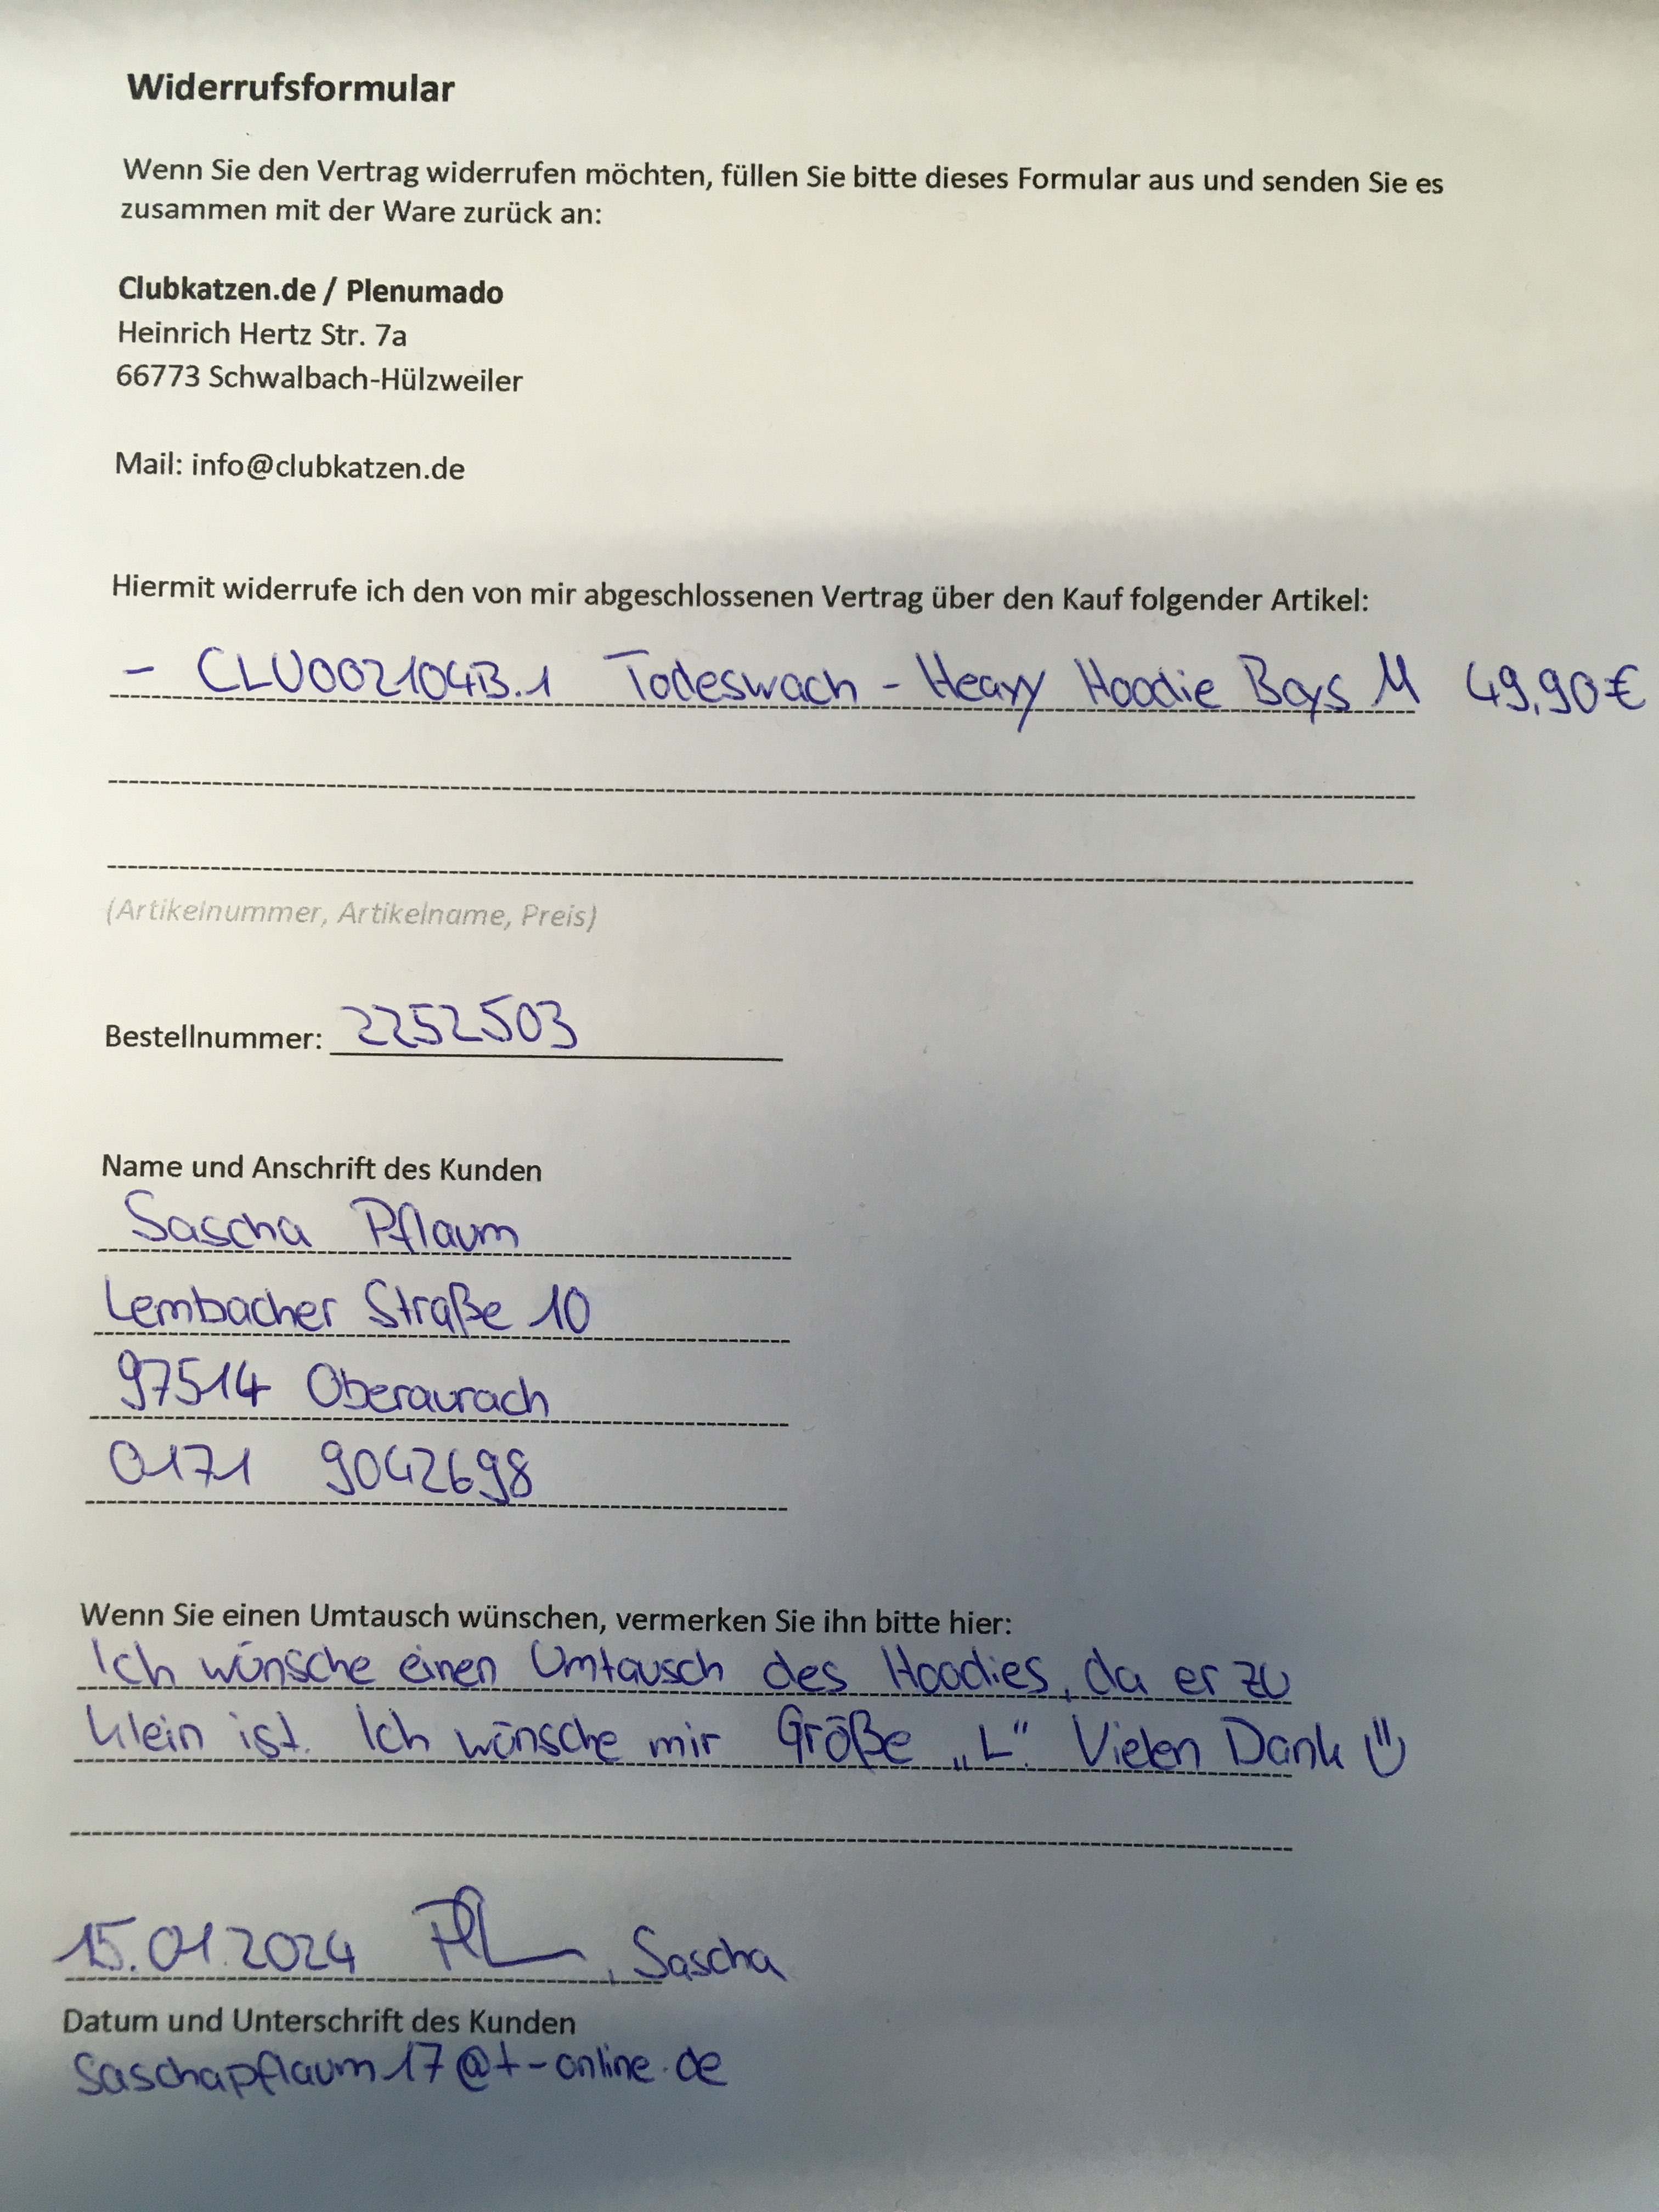 Widerrufsformular
Wenn Sie den Vertrag widerrufen möchten, füllen Sie bitte dieses Formular aus und senden Sie es
zusammen mit der Ware zurück an:
Clubkatzen.de / Plenumado
Heinrich Hertz Str. 7a
66773 Schwalbach-Hülzweiler
Mail: info@clubkatzen.de
Hiermit widerrufe ich den von mir abgeschlossenen Vertrag über den Kauf folgender Artikel:
- CLU002104B.1 Todeswach - Heavy Hoodie Boys M 49,90€
(Artikelnummer, Artikelname, Preis)
Bestellnummer: 2252503
Name und Anschrift des Kunden
Sascha Pflaum
Lembacher Straße 10
97514 Oberaurach
0171 9042698
Wenn Sie einen Umtausch wünschen, vermerken Sie ihn bitte hier:
Ich wünsche einen Umtausch des Hoodies, da er zu
klein ist. Ich wünsche mir Größe „L". Vielen Dank
15.01.2024 Pfl, Sascha
Datum und Unterschrift des Kunden
saschapflaum17@t-online.de